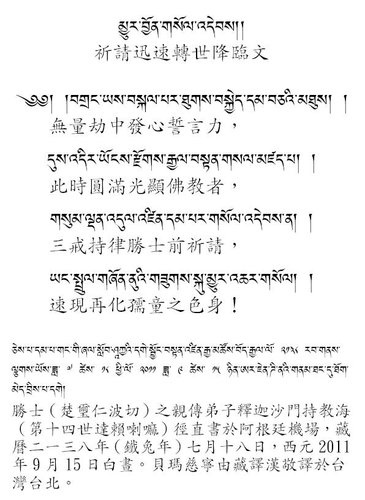 མྱུར་བྱོན་གསོལ་འདེབས།།
祈請迅速轉世降臨文
༄༅། །བགྲང་ཡས་བསྐལ་པར་ཐུགས་བསྐྱེད་དམ་བཅའི་མཐུས། །
無量劫中發心誓言力，
དུས་འདིར་ཡོངས་རྫོགས་རྒྱལ་བསྟན་གསལ་མཛད་པ། །
此時圓滿光顯佛教者，
གསུམ་ལྡན་འདུལ་འཛིན་དམ་པར་གསོལ་འདེབས་ན། །
三戒持律勝士前祈請，
ཡང་སྤྲུལ་གཞོན་ནུའི་གཟུགས་སྐུ་མྱུར་འཆར་གསོལ། །
速現再化孺童之色身！
ཅེས་པ་དམ་པ་གང་གི་ཞལ་སློབ་ཤཱཀྱའི་དགེ་སློང་བསྟན་འཛིན་རྒྱ་མཚོས་བོད་རྒྱལ་ལོ་ ༢༡༣༨ རབ་གནས་
ལྕགས་ཡོས་ཟླ་ ༧ ཚེས་ ༡༨ ཕྱི་ལོ་ ༢༠༡༡ ཟླ་ ༩ ཚེས་ ༡༥ ཉིན་
勝士（楚璽仁波切）之親傳弟子釋迦沙門持教海
（第十四世達賴喇嘛）徑直書於阿根廷機場，藏
曆二一三八年（鐵兔年）七月十八日，西元 2011
年 9 月 15 日白晝。貝瑪慈寧由藏譯漢敬譯於台
灣台北。